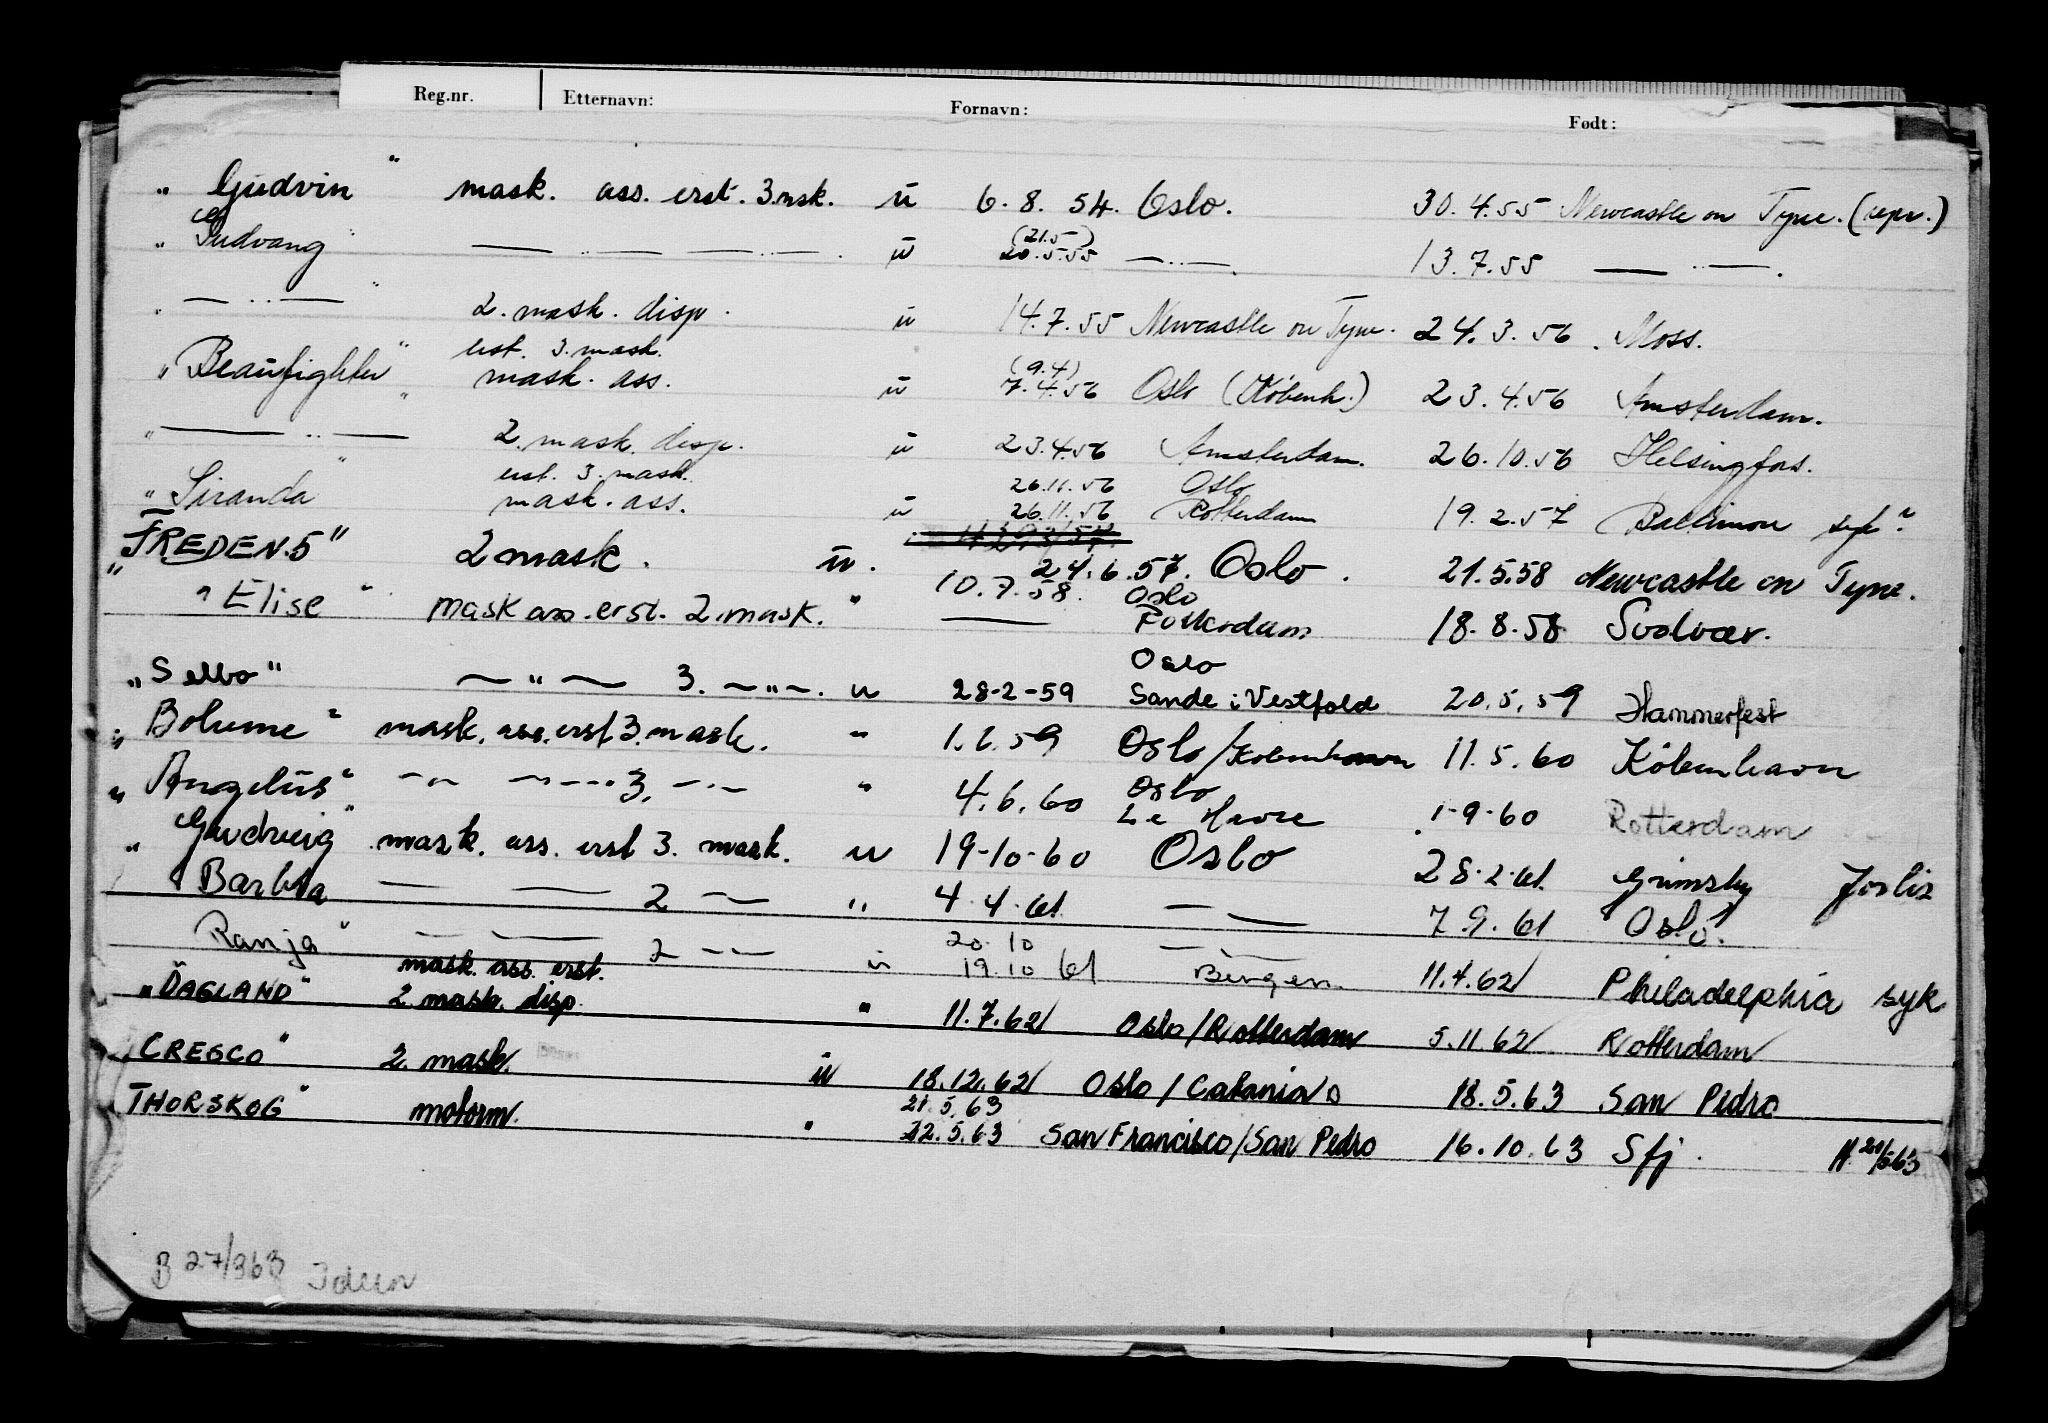 Reg.nr. Etternavn: Fornavn: Født:
" Gudvin " mask. ass. erst. 3. msk. u 6.8.54. Oslo. 30.4.55 Newcastle on Tyne. (repr.)
" Gudvang " — — — — . u (21.5) 20.5.55 — " — . 13.7.55 — " — .
" — " — " 2. mask. disp. u 14.7.55 Newcastle on Tyne. 24.3.56. Moss.
erst. 3. mask.
" Beaufighter " mask. ass. u (9.4) 7.4.56 Oslo (Københ.) 23.4.56 Amsterdam.
" — " — 2. mask. disp. u 23.4.56 Amsterdam. 26.10.56 Helsingfors.
erst. 3. mask. 26.11.56 Oslo
" Siranda " mask. ass. u 26.11.56 Rotterdam 19.2.57 Baltimore
" FREDEN.5 " 2 mask. u. 24.6.57. Oslo. 21.5.58 Newcastle on Tyne.
10.7.58. Oslo
" Elise " mask ass. erst. 2. mask. " — 18.8.58 Svolvær.
Oslo
" Selbo " — " — 3. — " — . u 28-2-59 Sande i Vestfold 20.5.59 Hammerfest
" Boheme " mask. ass. erst 3. mask. " 1.6.59 Oslo/København 11.5.60 København
Oslo
" Angelus " — " — — 3. — " — " 4.6.60 Le Havre 1-9-60 Rotterdam
" Gudveig " mask. ass. erst 3. mask. u 19-10-60 Oslo 28.2.61. Grimsby
Barbra — — 2 — " 4.4.61 — — 7.9.61 Oslo.
20.10
Ranja " — — 2 — — u 19.10 61 — Bergen. 11.4.62 Philadelphia syk
mask. ass. erst.
" DAGLAND " 2 mask. disp. " 11.7.62 Oslo/Rotterdam 5.11.62 Rotterdam
" CRESCO " 2. mask. u 18.12.62 Oslo/Catania 18.5.63 San Pedro
21.5.63
THORSKOG " motorm. " 22.5.63 San Francisco/San Pedro 16.10.63 Sfj.
B 27/363 Idun